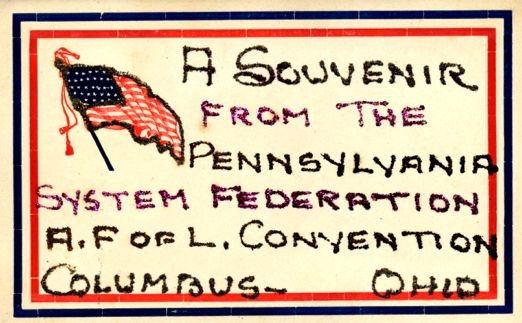 A SOUVENIR
FROM THE
PENNSYLVANIA
SYSTEM FEDERATION
A.F OF L. CONVENTION
COLUMBUS- OHIO